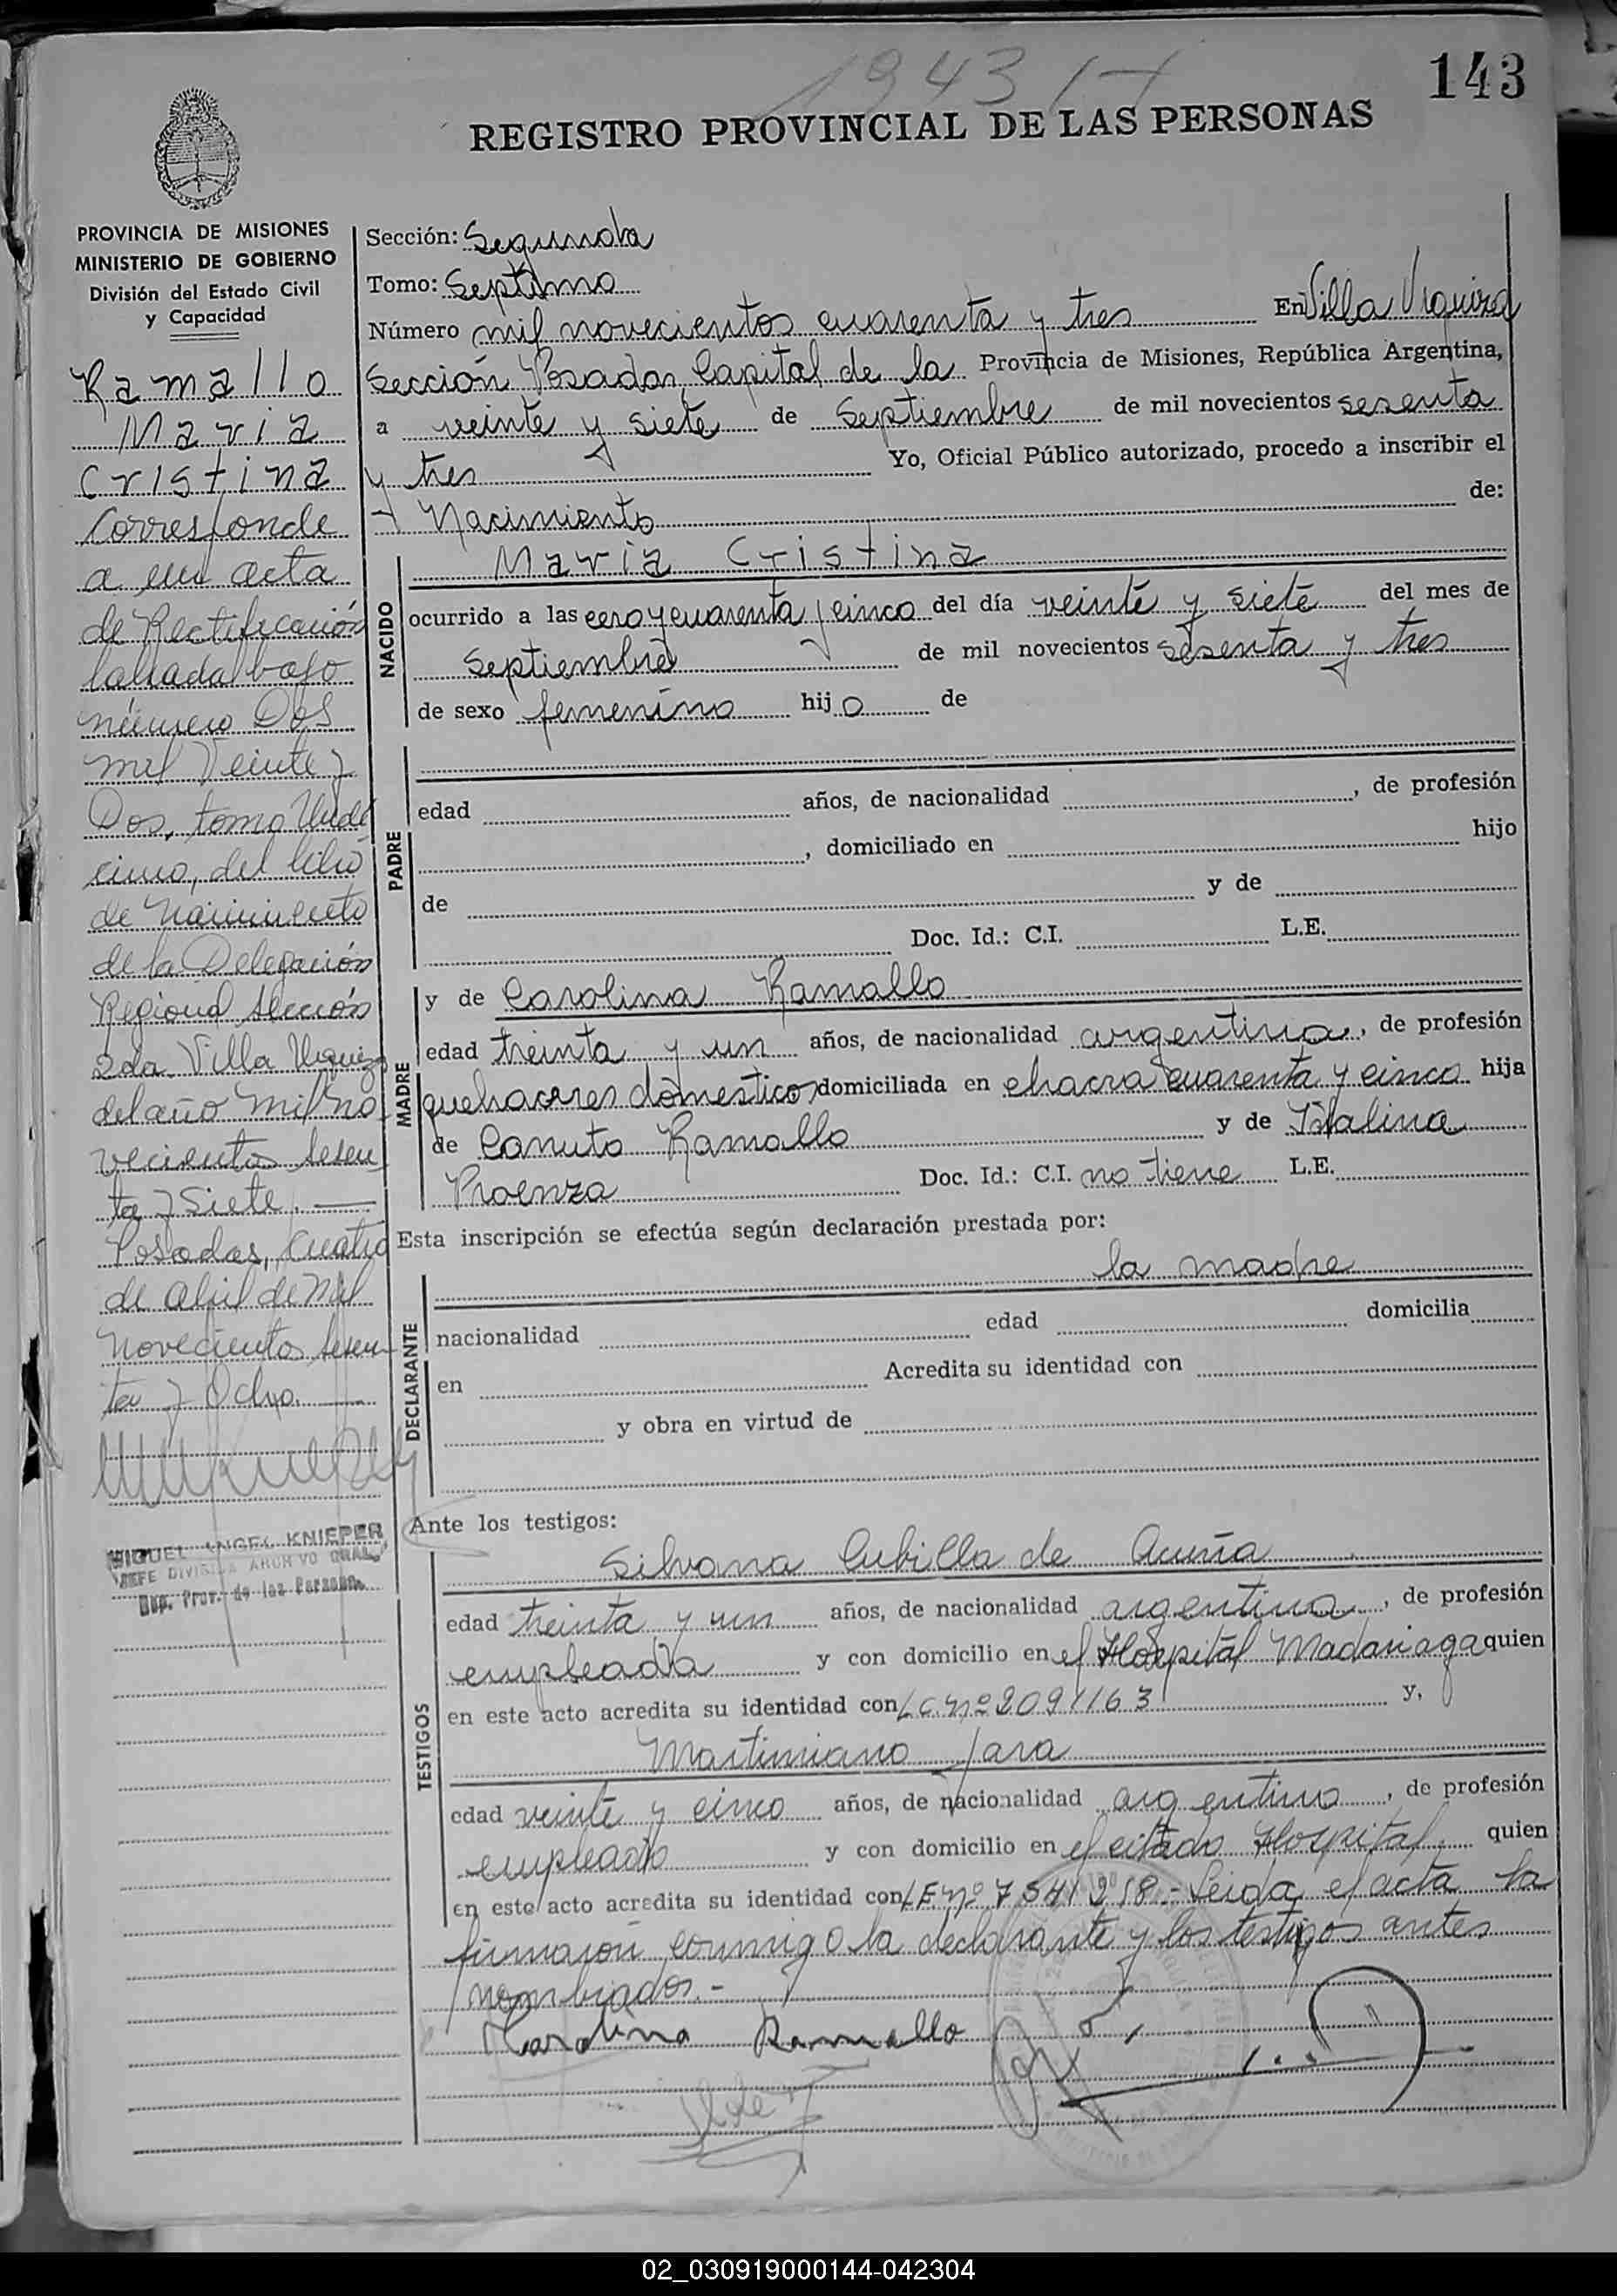 1943
143
REGISTRO PROVINCIAL DE LAS PERSONAS
PROVINCIA DE MISIONES
MINISTERIO DE GOBIERNO
División del Estado Civil
y Capacidad
Ramallo
Maria
Cristina
Corresponde
a un acta
de Rectificación
labrada bajo
número Dos
mil Veinte y
Dos, tomo Unde
cimo, del libro
de Nacimiento
de la Delegación
Regional Sección
2da. Villa Urquiza
del año Mil no-
vecientos sesen
ta y Siete.
Posadas, Cuatro
de abril de Mil
novecientos sesen-
ta y Ocho.
MIGUEL ANGEL KNIEPER
JEFE DIVISION ARCHIVO GRAL.
Rep. Prov. de las Personas
Sección: Segunda
Tomo: Septimo
Número mil novecientos cuarenta y tres En Villa Urquiza
Sección Posadas, Capital de la Provincia de Misiones, República Argentina,
a veinte y siete de Septiembre de mil novecientos sesenta
y tres Yo, Oficial Público autorizado, procedo a inscribir el
Nacimiento de:
NACIDO
Maria Cristina
ocurrido a las cero y cuarenta y cinco del día veinte y siete del mes de
Septiembre de mil novecientos sesenta y tres
de sexo femenino hija de
PADRE
edad años, de nacionalidad , de profesión
, domiciliado en hijo
de y de
Doc. Id.: C.I. L.E.
MADRE
y de Carolina Ramallo
edad treinta y un años, de nacionalidad argentina, de profesión
quehaceres domesticos domiciliada en chacra cuarenta y cinco hija
de Canuto Ramallo y de Italina
Proenza Doc. Id.: C.I. no tiene L.E.
Esta inscripción se efectúa según declaración prestada por:
la madre
DECLARANTE
nacionalidad edad domicilia
en Acredita su identidad con
y obra en virtud de
Ante los testigos:
TESTIGOS
Silvana Cubilla de Acuña
edad treinta y un años, de nacionalidad argentina, de profesión
empleada y con domicilio en el Hospital Madariaga quien
en este acto acredita su identidad con L.C. nº 2091163 y,
Martiniano Jara
edad veinte y cinco años, de nacionalidad argentino, de profesión
empleado y con domicilio en el citado Hospital, quien
en este acto acredita su identidad con L.E. nº 7541218.- Leida el acta la
firmaron conmigo la declarante y los testigos antes
nombrados.-
Carolina Ramallo
02_030919000144-042304